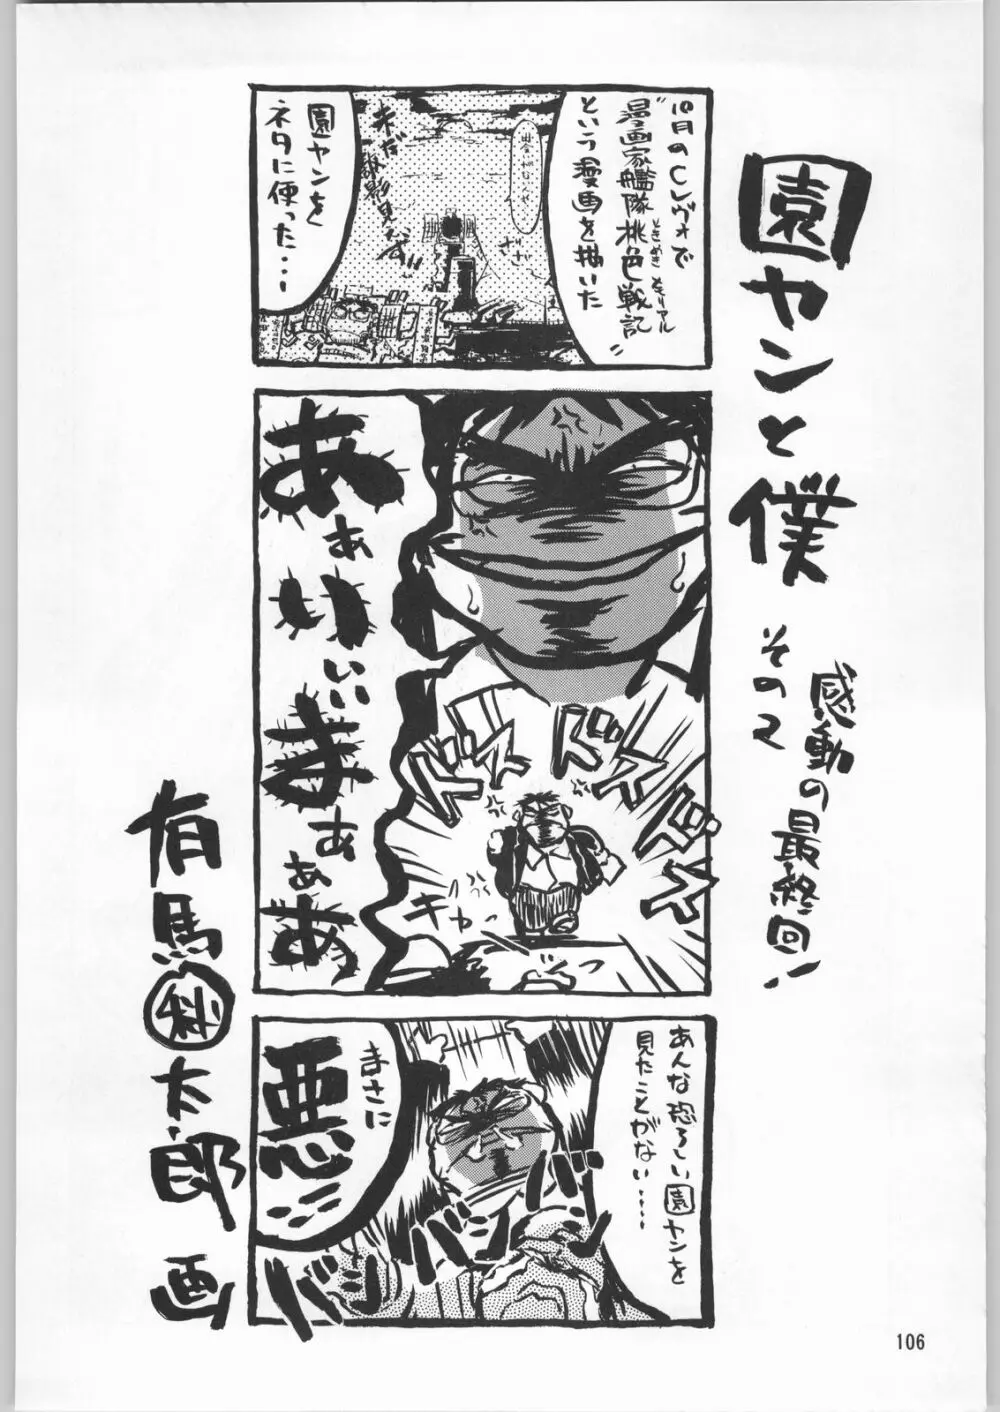 園ヤンと僕
その2
感動の最終回!
10月のCレヴォで
"漫画家艦隊桃色戦記"
ときめきメモリアル
という漫画を描いた
園ヤンを
ネタに使った・・・
ざざ
あぁいぃまぁぁあ
ドズドズドズ
キッ
あんな恐ろしい園ヤンを
見たことがない・・・・
まさに
悪
バンバンバン
有馬㊙太郎
画
106